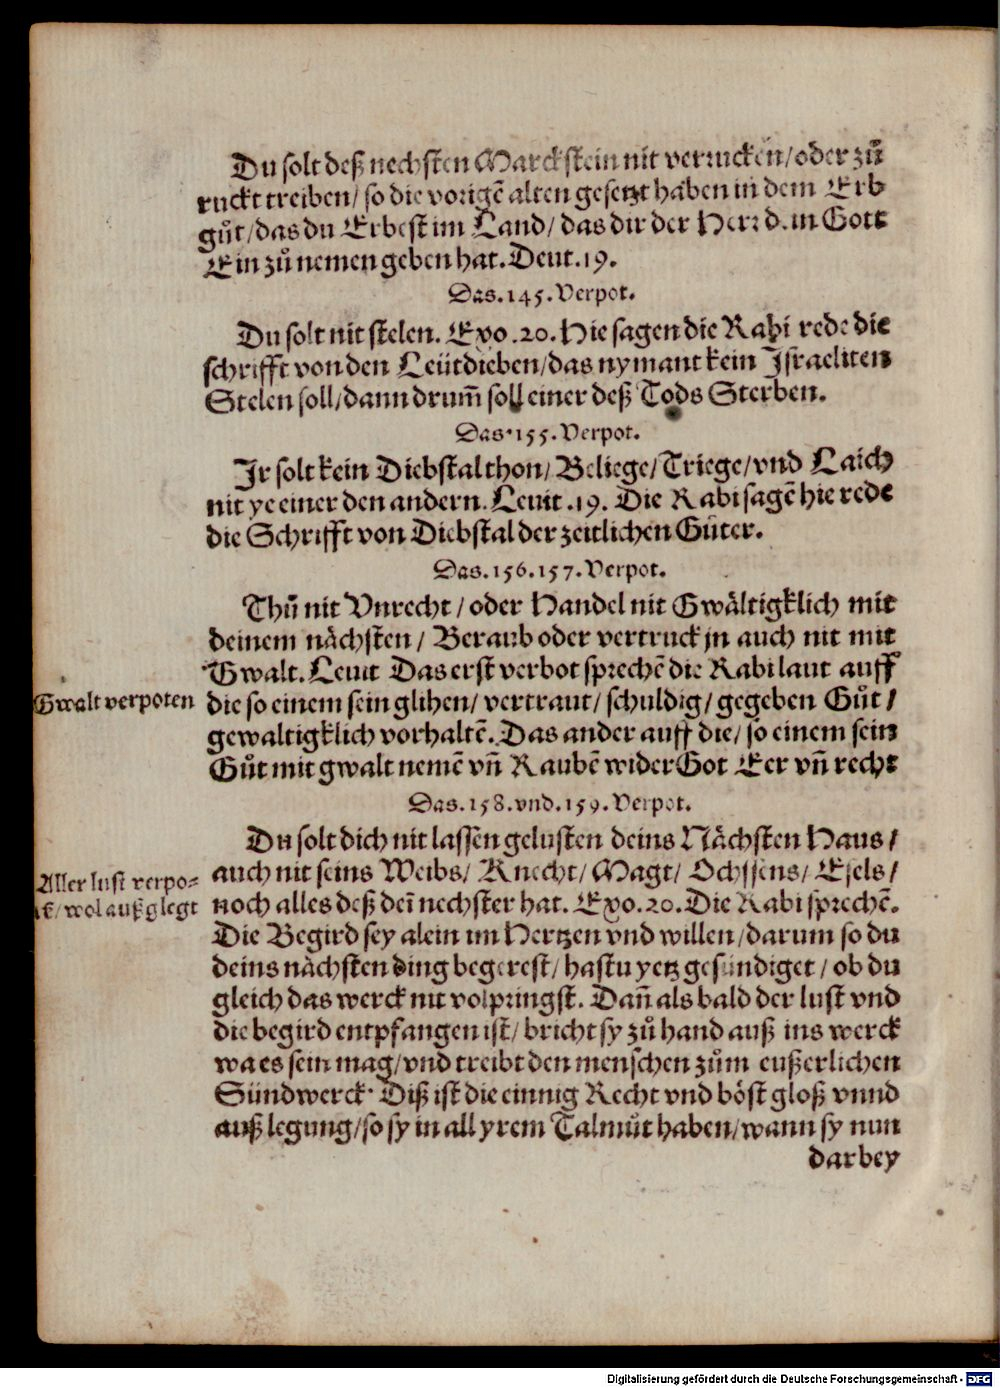 Du solt deß nechsten Marckstein nit verrucken/oder zů
ruckt treiben/ so die vorigē alten gesetzt haben in dem Erb
gůt/das du Erbest im Land/ das dir der Herr d. in Gott
Ein zů nemen geben hat. Deut.19.
Das.145.Verpot.
Du solt nit stelen. Exo.20. Hie sagen die Rabi rede die
schrifft von den Leütdieben/das nymant kein Israeliten
Stelen soll/dann drum̄ soll einer deß Tods Sterben.
Das.155.Verpot.
Jr solt kein Diebstal thon/ Beliege/ Triege/vnd Laich
nit ye einer den andern. Leuit.19. Die Rabi sagē hie rede
die Schrifft von Diebstal der zeitlichen Güter.
Das.156.157.Verpot.
Thů nit Vnrecht/ oder Handel nit Gwältigklich mit
deinem nächsten/ Beraub oder vertruck jn auch nit mit
Gwalt. Leuit Das erst verbot sprechē die Rabi laut auff
Gwalt verpoten
die so einem sein glihen/ vertraut/ schuldig/ gegeben Gůt/
gewaltigklich vorhaltē. Das ander auff die/ so einem sein
Gůt mit gwalt nemē vn̄ Raubē wider Got Eer vn̄ recht
Das.158.vnd.159.Verpot.
Du solt dich nit lassen gelusten deins Nächsten Haus/
auch nit seins Weibs/ Knecht/ Magt/ Ochssens/ Esels/
Aller lust verpo-
tē/ wol außglegt
noch alles deß den̄ nechster hat. Exo.20. Die Rabi sprechē.
Die Begird sey alein im Hertzen vnd willen/darum so du
deins nächsten ding begerest/ hastu yetz gesündiget/ ob du
gleich das werck nit volpringst. Dan̄ als bald der lust vnd
die begird entpfangen ist/ bricht sy zů hand auß ins werck
wa es sein mag/vnd treibt den menschen zům eußerlichen
Sündwerck. Diß ist die einnig Recht vnd böst gloß vnnd
außlegung/so sy in all yrem Talmůt haben/wann sy nun
darbey
Digitalisierung gefördert durch die Deutsche Forschungsgemeinschaft - DFG